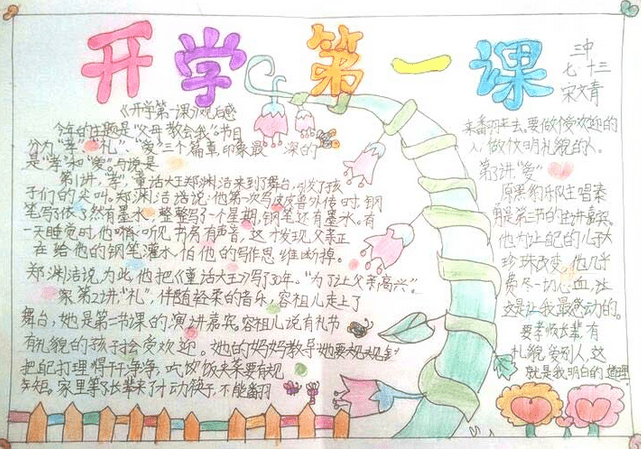 开学第一课
三中
七·十三
宋文青
《开学第一课》观后感
今年的主题是“父母教会我”节目
分为“孝、“礼”、“爱”三个篇章,印象最深的
是“孝”和“爱”
第1讲,“孝”,童话大王郑渊洁来到了舞台,引发了孩
子们的尖叫。郑渊洁说:他第一次写皮皮鲁外传时,钢
笔写了依然有墨水,整整写了一个星期,钢笔还有墨水。有
一天睡觉时他听见书房有声音,这才发现父亲正
在给他的钢笔灌水,怕他的写作思维断掉。
郑渊洁说为此,他把《童话大王》写了30年。“为了让父亲高兴”。
第2讲,“礼”,伴随轻柔的音乐,容祖儿走上了
舞台,她是第一节课的演讲嘉宾。容祖儿说有礼节
有礼貌的孩子才会受欢迎。她的妈妈教导她要规规矩
把自己打理得干干净净,吃饭夹菜要有规
矩,家里等长辈来了才动筷子,不能翻
来翻去,要做受欢迎的
人,做文明礼貌的人。
第3讲,“爱”
原黑豹乐队主唱秦
勇是第三节的主讲嘉宾
他为让自己的儿子大
珍珠改变,他几乎
费尽一切心血,注
这是让我最感动的。
要孝敬长辈,有
礼貌,爱别人,这
就是我明白的道理